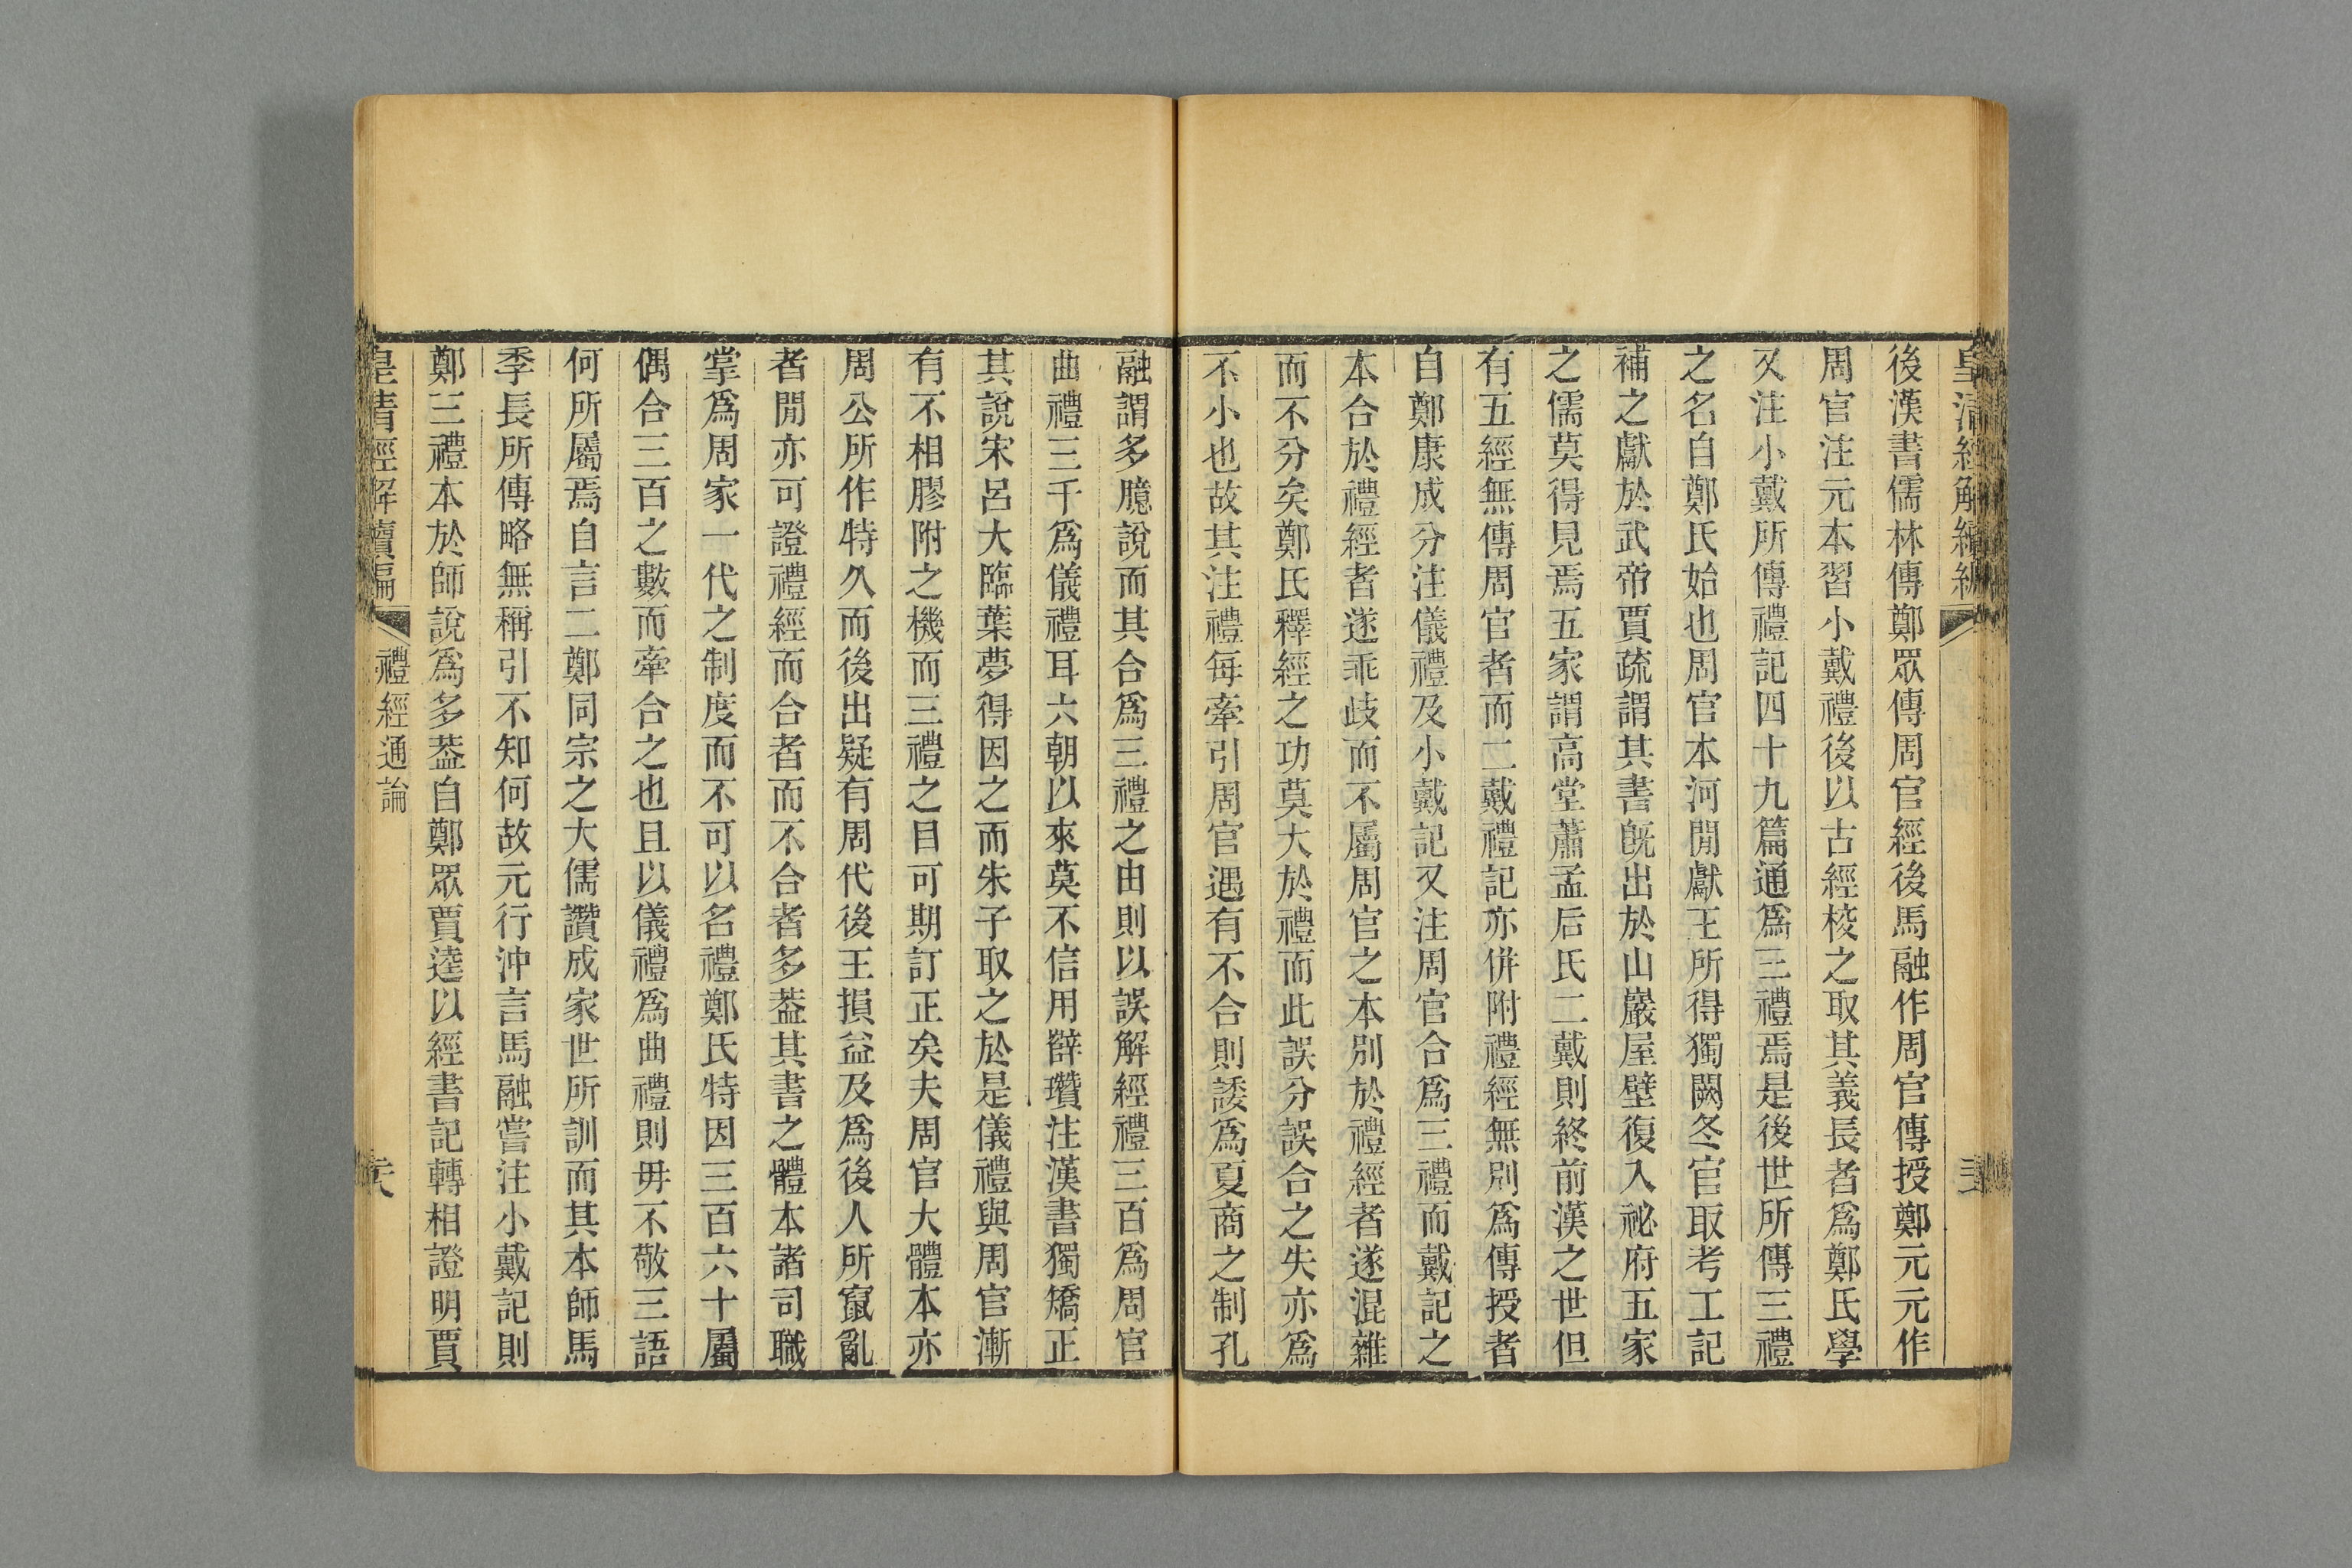 皇清經解續編
後漢書儒林傳鄭眾傳周官經後馬融作周官傳授鄭元元作
周官注元本習小戴禮後以古經校之取其義長者爲鄭氏學
又注小戴所傳禮記四十九篇通爲三禮焉是後世所傳三禮
之名自鄭氏始也周官本河閒獻王所得獨闕冬官取考工記
補之獻於武帝賈疏謂其書旣出於山巖屋壁復入祕府五家
之儒莫得見焉五家謂高堂蕭孟后氏二戴則終前漢之世但
有五經無傳周官者而二戴禮記亦併附禮經無別爲傳授者
自鄭康成分注儀禮及小戴記又注周官合爲三禮而戴記之
本合於禮經者遂乖歧而不屬周官之本別於禮經者遂混雜
而不分矣鄭氏釋經之功莫大於禮而此誤分誤合之失亦爲
不小也故其注禮每牽引周官遇有不合則諉爲夏商之制孔
融謂多臆說而其合爲三禮之由則以誤解經禮三百爲周官
曲禮三千爲儀禮耳六朝以來莫不信用辥瓚注漢書獨矯正
其說宋呂大臨葉夢得因之而朱子取之於是儀禮與周官漸
有不相膠附之機而三禮之目可期訂正矣夫周官大體本亦
周公所作特久而後出疑有周代後王損益及爲後人所竄亂
者閒亦可證禮經而合者而不合者多葢其書之體本諸司職
掌爲周家一代之制度而不可以名禮鄭氏特因三百六十屬
偶合三百之數而牽合之也且以儀禮爲曲禮則毋不敬三語
何所屬焉自言二鄭同宗之大儒讚成家世所訓而其本師馬
季長所傳略無稱引不知何故元行沖言馬融嘗注小戴記則
鄭三禮本於師說爲多葢自鄭眾賈逵以經書記轉相證明賈
皇清經解續編 禮經通論